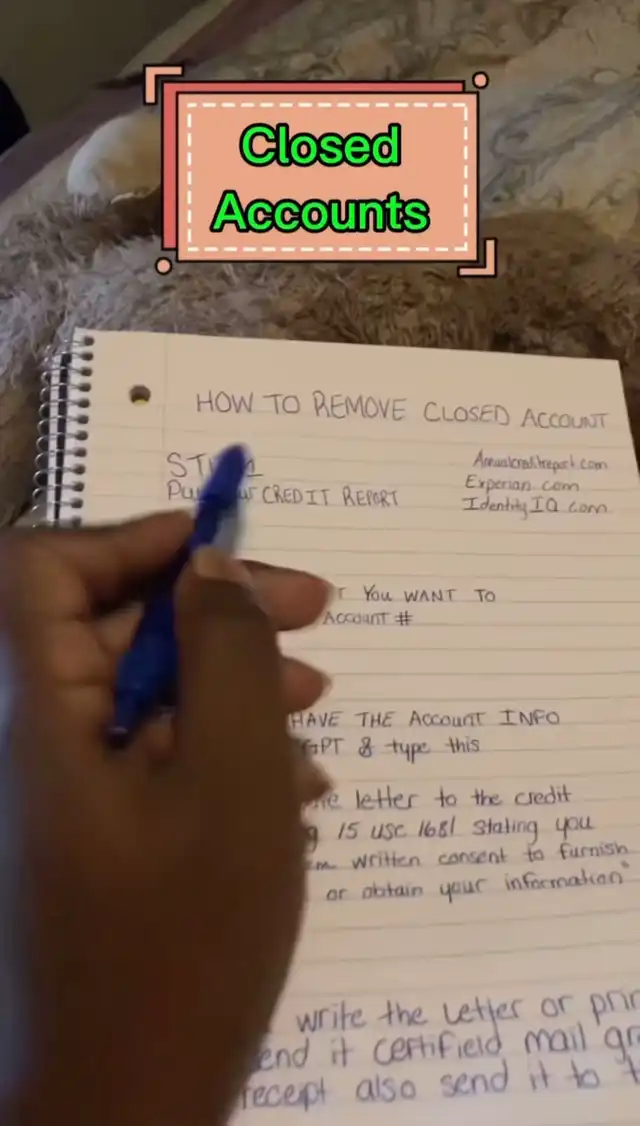 Closed
Accounts
HOW TO REMOVE CLOSED ACCOUNT
Annualcreditreport.com
CREDIT REPORT
Experian.com
IdentityIQ.com
YOU WANT TO
ACCOUNT #
HAVE THE ACCOUNT INFO
GPT & type this
letter to the credit
15 USC 1681 stating you
written consent to furnish
or obtain your information"
write the letter or
it certifield mail
receipt also send it to